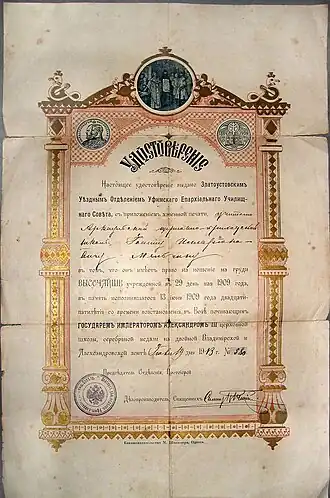 Удостовѣреніе
Настоящее удостовѣреніе выдано Златоустовскимъ
Уѣзднымъ Отдѣленіемъ Уфимскаго Епархіальнаго Училищ-
наго Совѣта, съ приложеніемъ казенной печати, учителю
церковно-приходской
школы
въ томъ, что онъ имѣетъ право на ношеніе на груди
ВЫСОЧАЙШЕ учрежденной въ 29 день мая 1909 года,
въ память исполнившагося 13 іюня 1909 года двадцати-
пятилѣтія со времени возстановленія въ Бозѣ почивающимъ
ГОСУДАРЕМЪ ИМПЕРАТОРОМЪ АЛЕКСАНДРОМЪ III церковной
школы, серебряной медали на двойной Владимірской и
Александровской лентѣ. дня 1913 г. №
Предсѣдатель Отдѣленія, Протоіерей
Дѣлопроизводитель, Священникъ